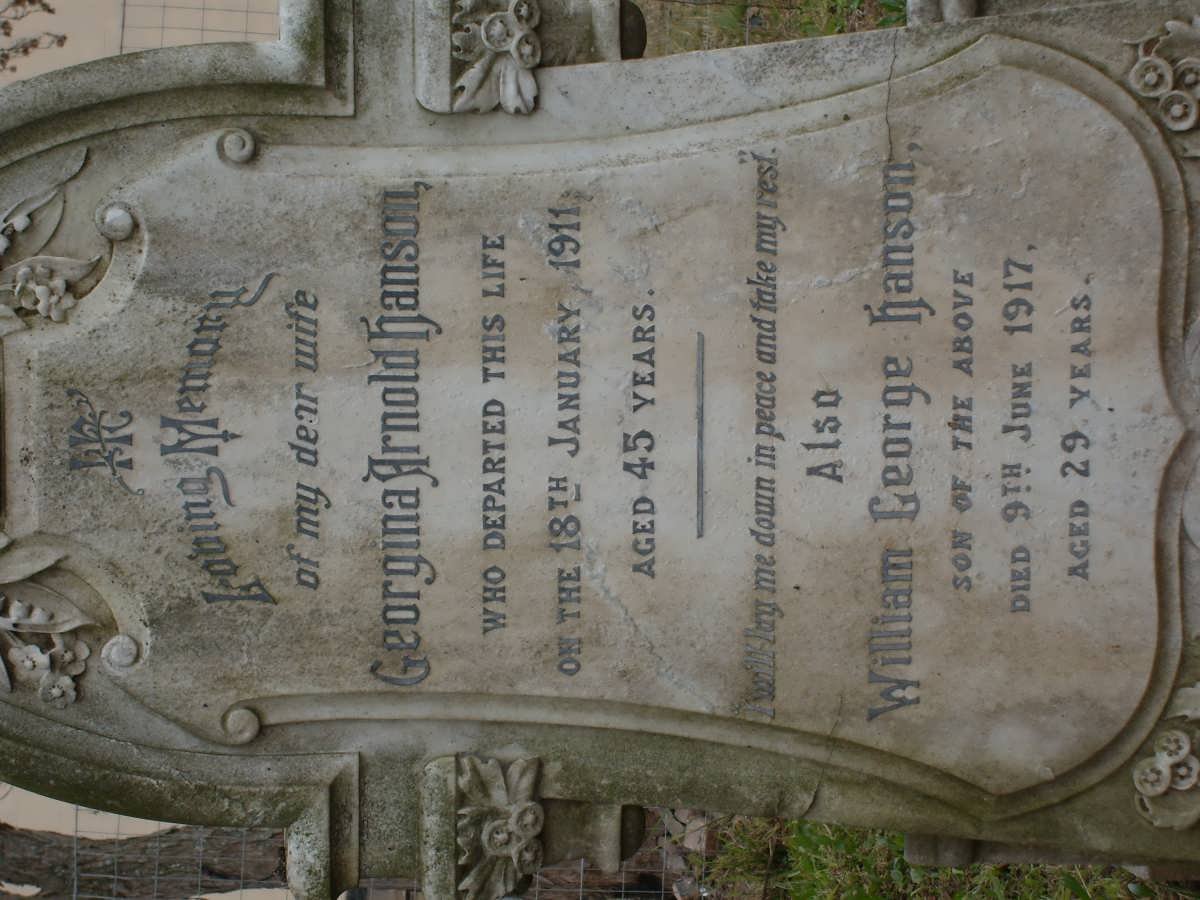 In
Loving Memory
of my dear wife
Georgina Arnold Hanson,
WHO DEPARTED THIS LIFE
ON THE 18TH JANUARY 1911,
AGED 45 YEARS.
"I will lay me down in peace and take my rest."
Also
William George Hanson,
SON OF THE ABOVE
DIED 9TH JUNE 1917,
AGED 29 YEARS.